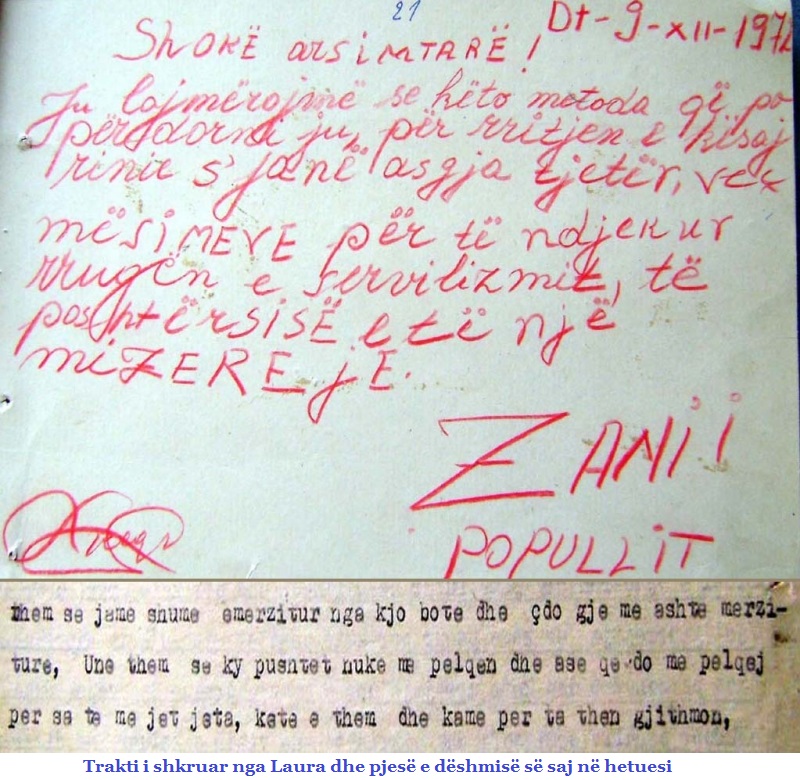 21
Dt-9-XII-197
SHOKË ARSIMTARË !
Ju lajmërojmë se këto metoda që po
përdorni ju, për rritjen e kësaj
rinie s'janë asgja tjetër, veç
mësIMEVE për të ndjekur
rrugën e servilizmit, të
poshtËRSISË e të një
miZEREJE.
ZANI i
POPULLiT
them se jame shume emerzitur nga kjo bote dhe çdo gje me ashte merzi-
ture, Une them se ky pushtet nuke me pelqen dhe ase qe do me pelqej
per sa te me jet jeta, kete e them dhe kame per ta then gjithmon,
Trakti i shkruar nga Laura dhe pjesë e dëshmisë së saj në hetuesi